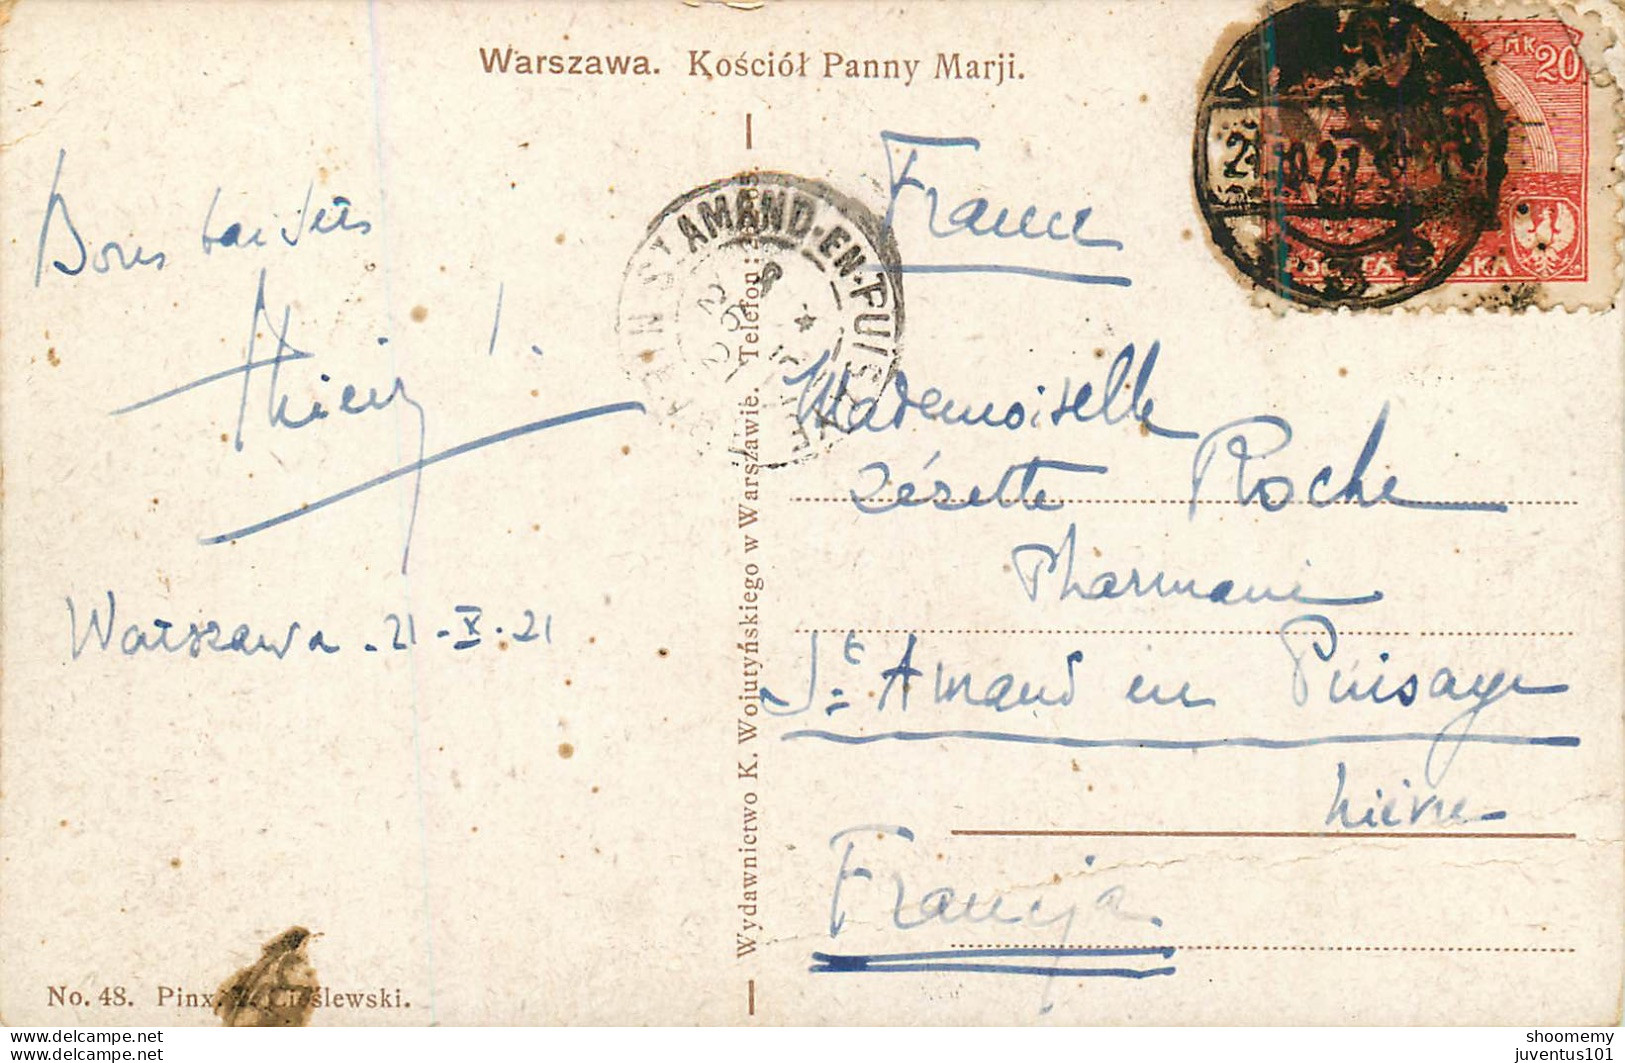 Warszawa. Kościół Panny Marji.
MK 20
21.10.21
POCZTA POLSKA
ST AMAND-EN-PUISAYE
25
21
France
Bons baisers
!
Warszawa . 21 - X . 21
Wydawnictwo K. Wojutyńskiego w Warszawie. Telefon:
Mademoiselle
Zézette Roche
Pharmacie
St Amand en Puisaye
Nièvre
Francja
No. 48. Pinx. Cieślewski.
shoomemy
juventus101